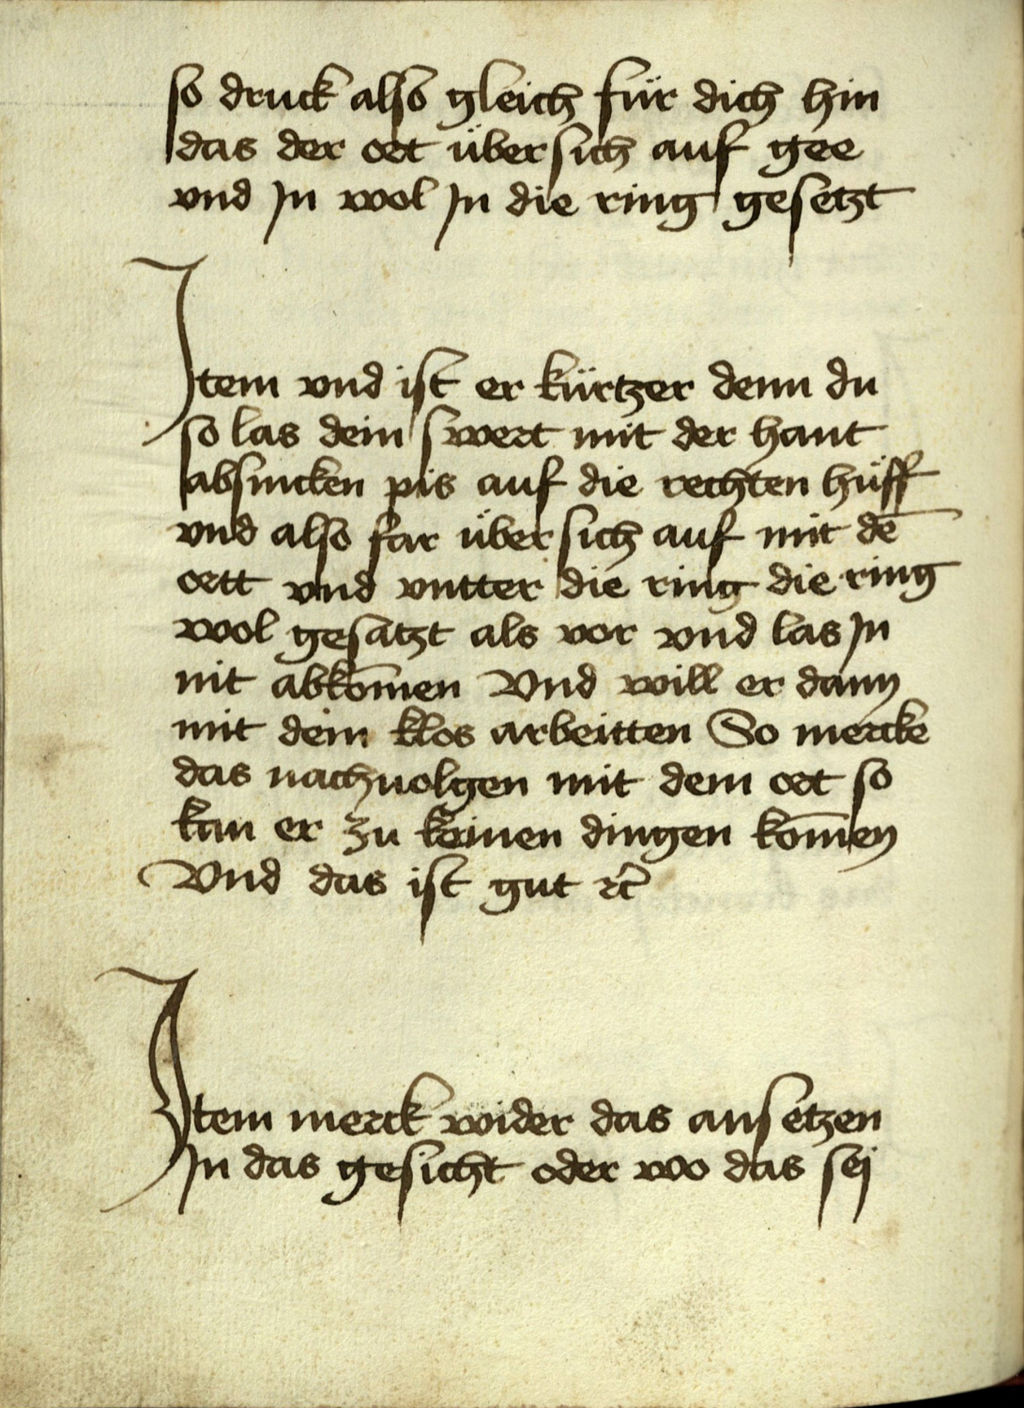 so druck also gleich für dich hin
das der ort übersich auf gee
vnd Jn wol Jn die ring gesetzt
Item vnd ist er kürtzer denn du
so las dein swert mit der hant
absincken pis auf die rechten hüff
vnd also far übersich auf mit dē
ortt vnd vntter die ring die ring
wol gesatzt als vor vnd las Jn
nit abkom̄en Vnd will er dann
mit dein klos arbeitten So mercke
das nachuolgen mit dem ort so
kan er zu keinen dingen kom̄en
Vnd das ist gut ⁊c̄
Item merck wider das ansetzen
Jn das gesicht oder wo das sej